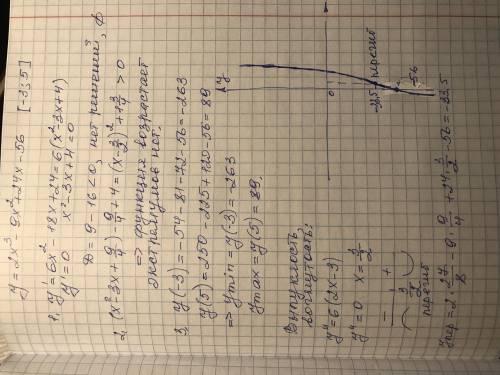 y = 2x³ - 9x² + 24x - 56 [-3; 5]
1, y' = 6x² - 18x + 24 = 6(x² - 3x + 4)
y' = 0 x² - 3x + 4 = 0
D = 9 - 16 < 0, нет решений,
2, (x² - 3x + 9/4) - 9/4 + 4 = (x - 3/2)² + 1 3/4 > 0
=> функция возрастает
экстремумов нет.
3, y(-3) = -54 - 81 - 72 - 56 = -263
y(5) = 250 - 225 + 120 - 56 = 89
=> ymin = y(-3) = -263
ymax = y(5) = 89.
Выпуклость,
вогнутость:
y'' = 6(2x - 3)
y'' = 0 x = 3/2
- +
3/2
перегиб
yпер = 2 · 27/8 - 9 · 9/4 + 24 · 3/2 - 56 = -33,5
y
0
-33,5 перегиб
-56